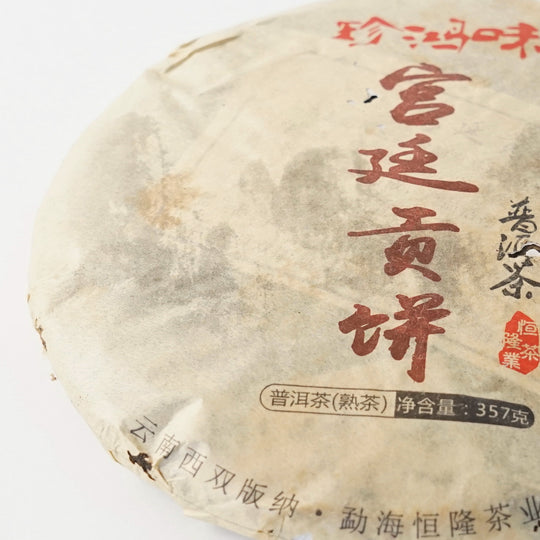 珍鸿味
宫廷贡饼
普洱茶
恒隆茶業
普洱茶(熟茶) 净含量:357克
云南西双版纳·勐海恒隆茶业